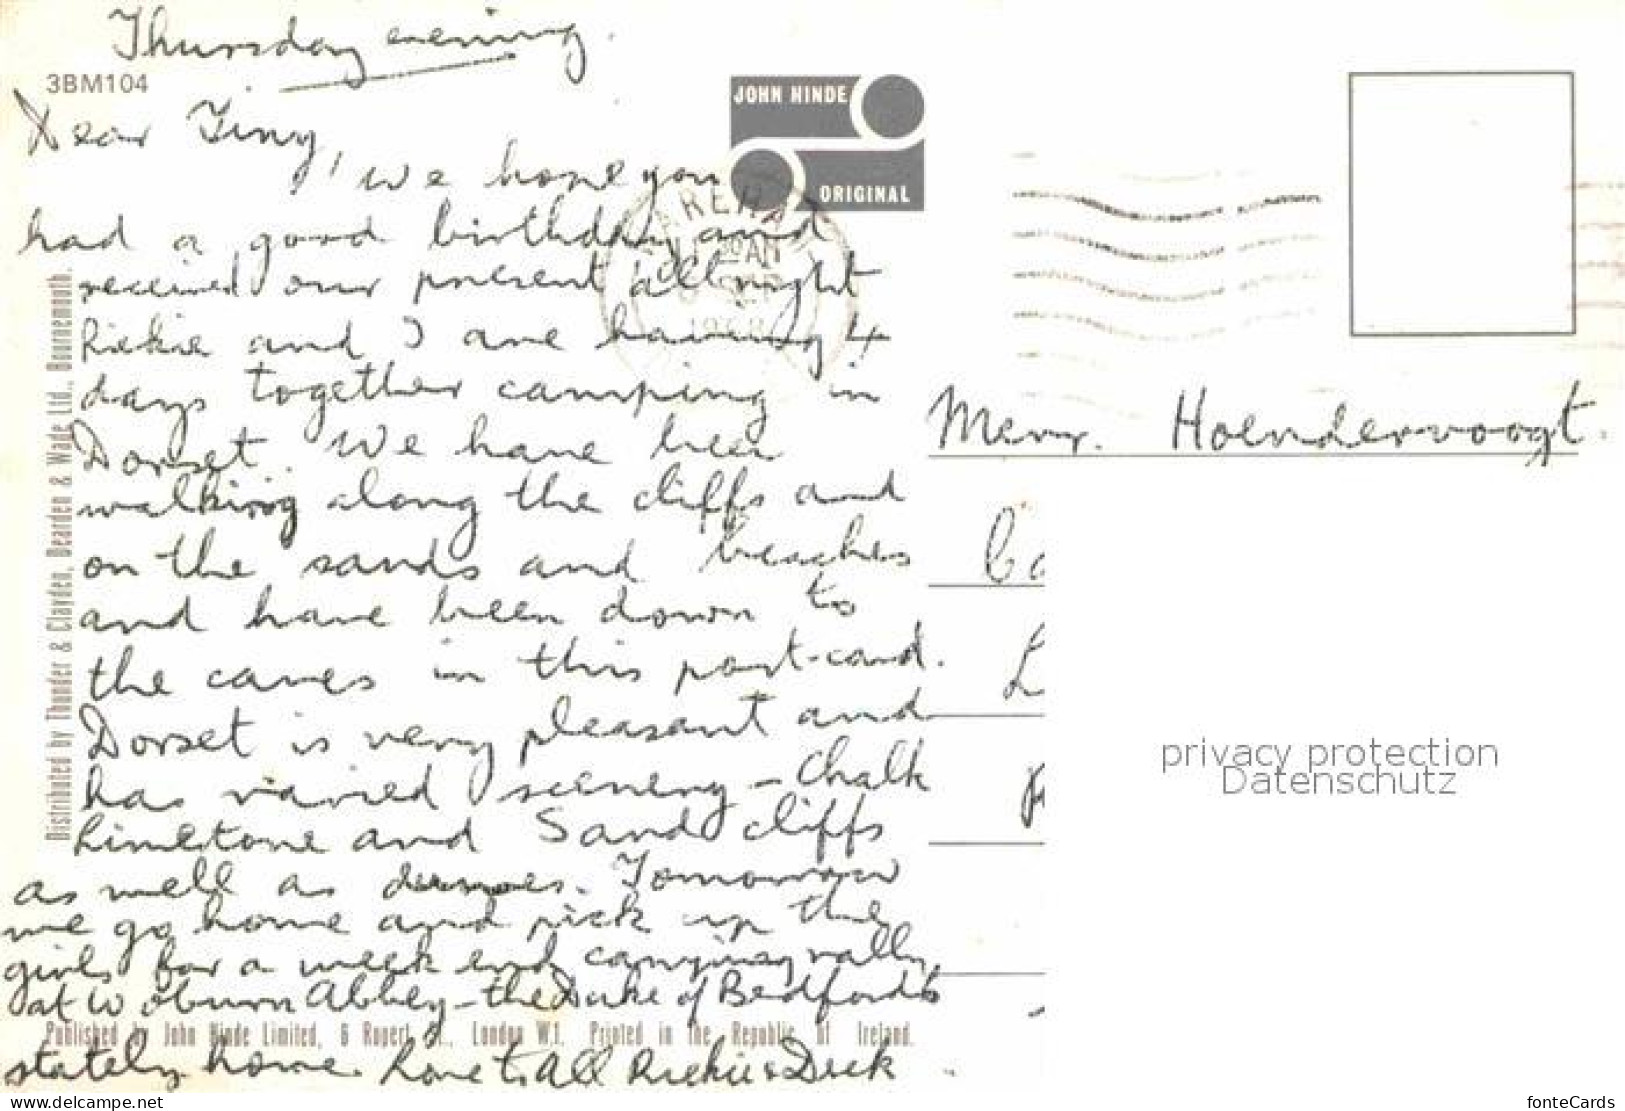 Thursday evening.
3BM104
Dear Tiny,
we hope you
had a good birthday and
received our present all right
Rickie and I are having 4
days together camping in
Dorset. We have been
walking along the cliffs and
on the sands and beaches
and have been down to
the caves in this post-card.
Dorset is very pleasant and
has varied scenery - Chalk
Limestone and Sand cliffs
as well as dunes. Tomorrow
we go home and pick up the
girls for a week end camping rally
at Woburn Abbey - the Duke of Bedford's
stately home. Love to all Rickie & Dick
Distributed by Thunder & Clayden, Dearden & Wade Ltd., Bournemouth.
Published by John Hinde Limited, 6 Rupert St., London W.1. Printed in the Republic of Ireland.
JOHN HINDE
ORIGINAL
WAREHAM
1968
Menr. Hoendervoogt.
privacy protection
Datenschutz
www.delcampe.net
fonteCards